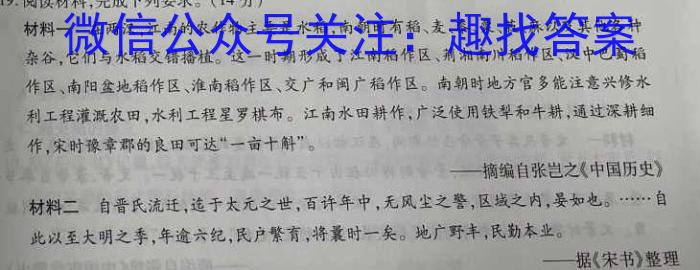 19. 阅读材料,完成下列要求。(14分)
微信公众号关注:趣找答案
材料一
杂谷,它们与水稻交错播植。这一时期形成了江南稻作区、荆湘南川稻作区、汉中巴蜀稻
作区、南阳盆地稻作区、淮南稻作区、交广和闽广稻作区。南朝时地方官多能注意兴修水
利工程灌溉农田,水利工程星罗棋布。江南水田耕作,广泛使用铁犁和牛耕,通过深耕细
作,宋时豫章郡的良田可达“一亩十斛”。
——摘编自张岂之《中国历史》
材料二 自晋氏流迁,迄于太元之世,百许年中,无风尘之警,区域之内,晏如也。……自
此以至大明之季,年逾六纪,民户繁育,将曩时一矣。地广野丰,民勤本业。
——据《宋书》整理